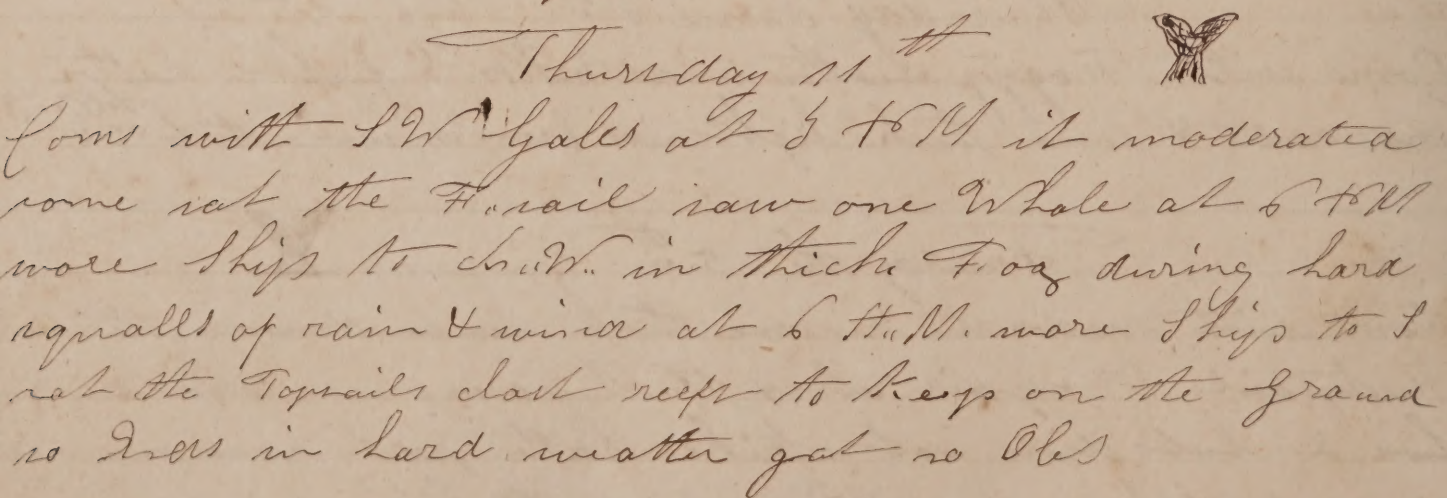 Thursday 11th
Coms with SW Gales at 5 PM it moderated
some sat the F..sail saw one Whale at 6 PM
wore Ship to N..W.. in thick Fog during hard
squalls of rain & wind at 6 A..M. wore Ship to S
sat the Topsails clost reeft to keep on the Ground
so Ends in hard weather gat no Obs